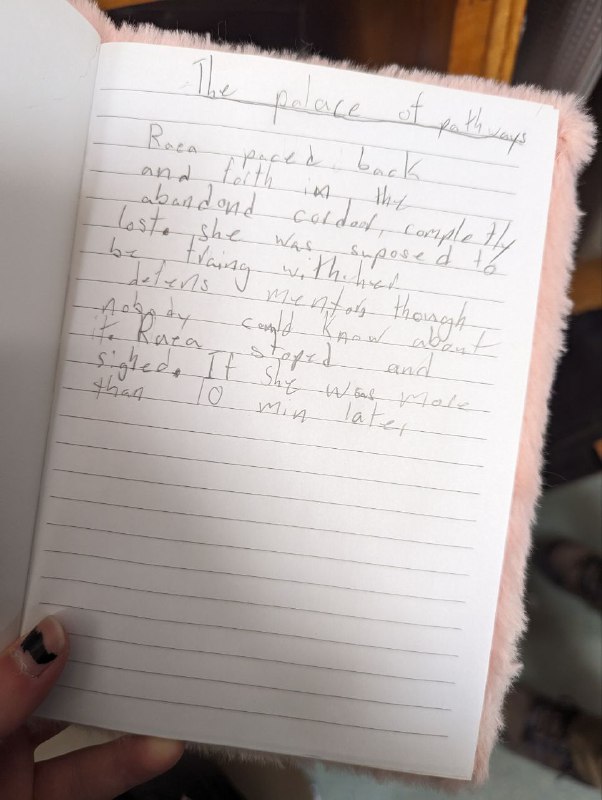 The palace of pathways
Raea paced back
and forth in the
abandond coridoor, completly
lost. she was suposed to
be traing with her
defens mentor, though
nobody could know about
it. Raea stoped and
sighed. If she was more
than 10 min later